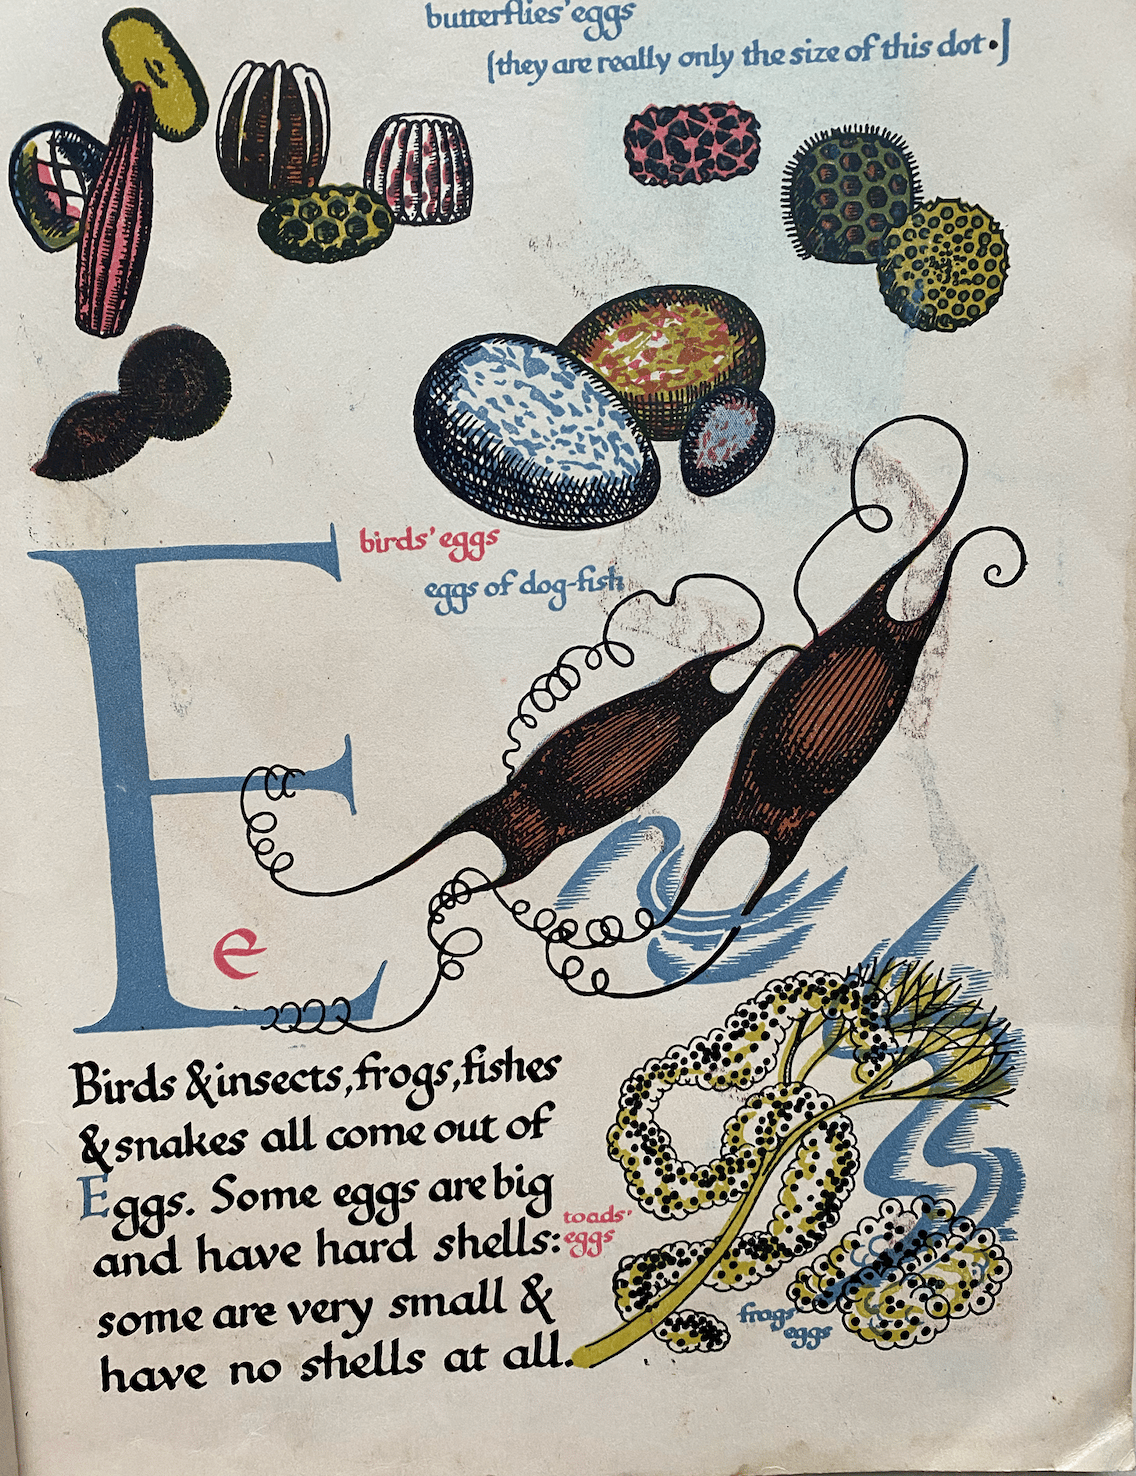 butterflies' eggs
[they are really only the size of this dot •]
birds' eggs
eggs of dog-fish
E
e
Birds & insects, frogs, fishes
& snakes all come out of
Eggs. Some eggs are big
and have hard shells:
some are very small &
have no shells at all.
toads'
eggs
frogs'
eggs